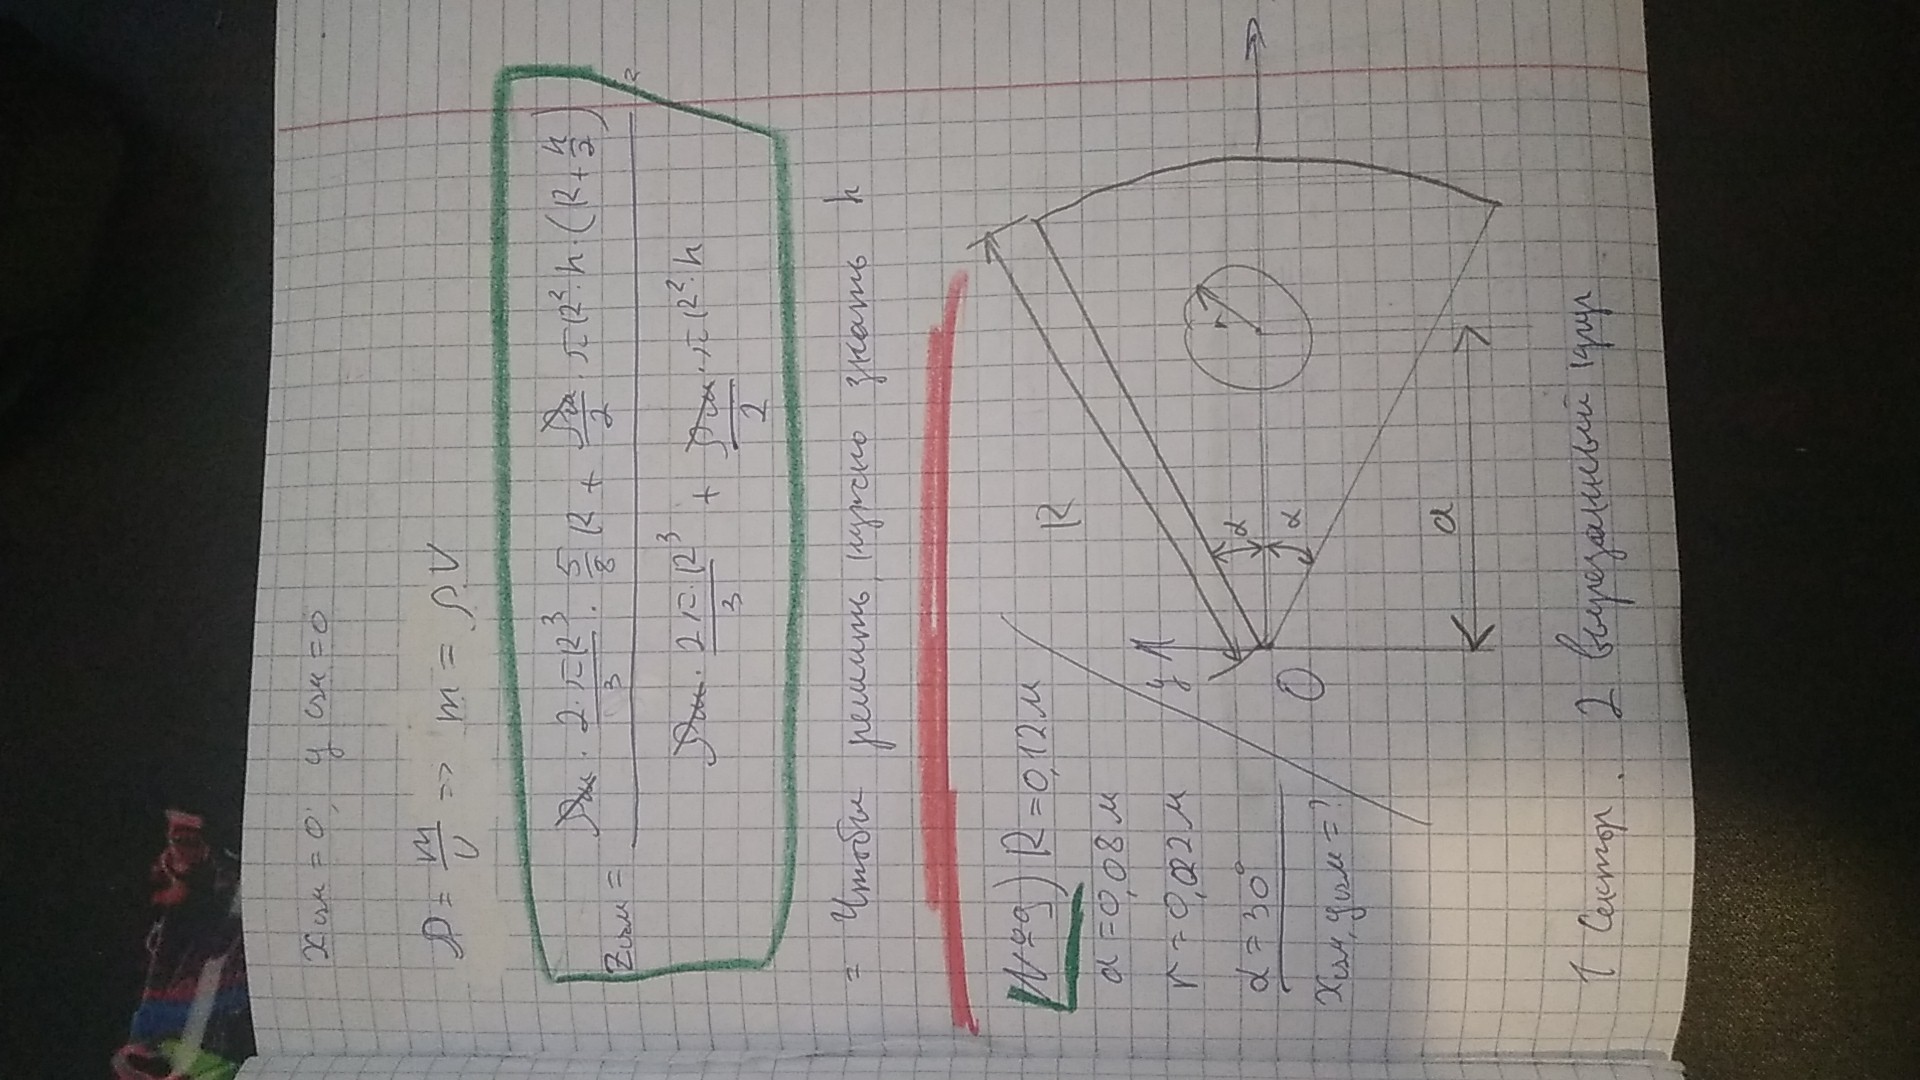 xцм = 0; y цм = 0
ρ = m/V => m = ρV
zцм = (ρм · 2·πR³/3 · 5/8 R + ρм/2 · πR²·h·(R + h/2)) / (ρм · 2π·R³/3 + ρм/2 · πR²·h) =
= Чтобы решить, нужно знать h
№9) R = 0,12 м
a = 0,08 м
r = 0,02 м
α = 30°
xцм, yцм = ?
R
y
r
α
α
O
a
1 Сектор. 2 вырезанный круг